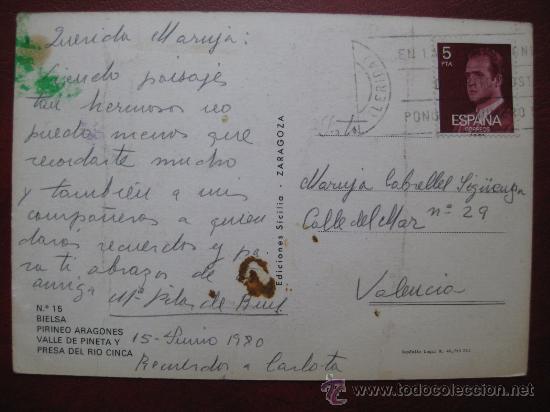 Querida Maruja:
Viendo paisajes
tan hermosos no
puedo menos que
recordarte mucho
y también a mis
compañeras a quien
darás recuerdos y pa
ra ti abrazos de
amiga Mª Pilar de
Nº 15
BIELSA
PIRINEO ARAGONES
VALLE DE PINETA Y
PRESA DEL RIO CINCA
15-Junio 1980
Recuerdos a Carlota
Ediciones Sicilia - ZARAGOZA
5
PTA
ESPAÑA
CORREOS
EN
PONG
Srta
Maruja Cabrellet Sigüenza
Calle del Mar nº 29
Valencia
Depósito Legal B.
todocoleccion.net